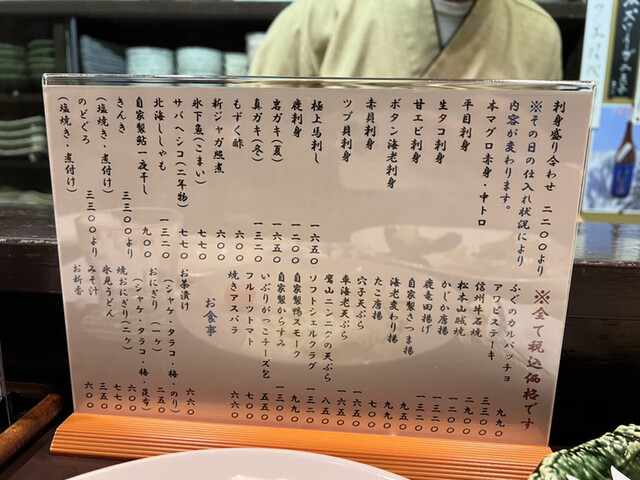 刺身盛り合わせ 二二〇〇より
※その日の仕入れ状況により
内容が変わります。
本マグロ赤身・中トロ
平目刺身
生タコ刺身
甘エビ刺身
ボタン海老刺身
赤貝刺身
ツブ貝刺身
極上馬刺し 一六五〇
鹿刺身 一二〇〇
岩ガキ（夏） 一六五〇
真ガキ（冬） 一三二〇
もずく酢 六六〇
新ジャガ照煮 六六〇
氷下魚（こまい） 七七〇
サバヘシコ（二年物） 七七〇
北海ししゃも 一三二〇
自家製鮎一夜干し 九〇〇
きんき 三三〇〇より
（塩焼き・煮付け）
のどぐろ 三三〇〇より
（塩焼き・煮付け）
※全て税込価格です
ふぐのカルパッチョ 九九〇
アワビステーキ 三三〇〇
信州牛石焼 二二〇〇
松本山賊焼
かじか唐揚 一三二〇
鹿竜田揚げ 一三二〇
自家製さつま揚 九九〇
海老変わり揚 九五〇
たこ唐揚 七〇〇
穴子天ぷら
車海老天ぷら 一六五〇
鷹山ニンニクの天ぷら 八五〇
ソフトシェルクラブ 九九〇
自家製鴨スモーク 一三二〇
自家製からすみ 一三二〇
いぶりがっこチーズと 五五〇
フルーツトマト 六六〇
焼きアスパラ 六六〇
お食事
お茶漬け
（シャケ・タラコ・梅・のり） 六六〇
おにぎり（一ヶ） 二五〇
（シャケ・タラコ・梅・昆布）
焼おにぎり（二ヶ） 六〇〇
氷見うどん 七七〇
みそ汁 三五〇
お新香 六〇〇